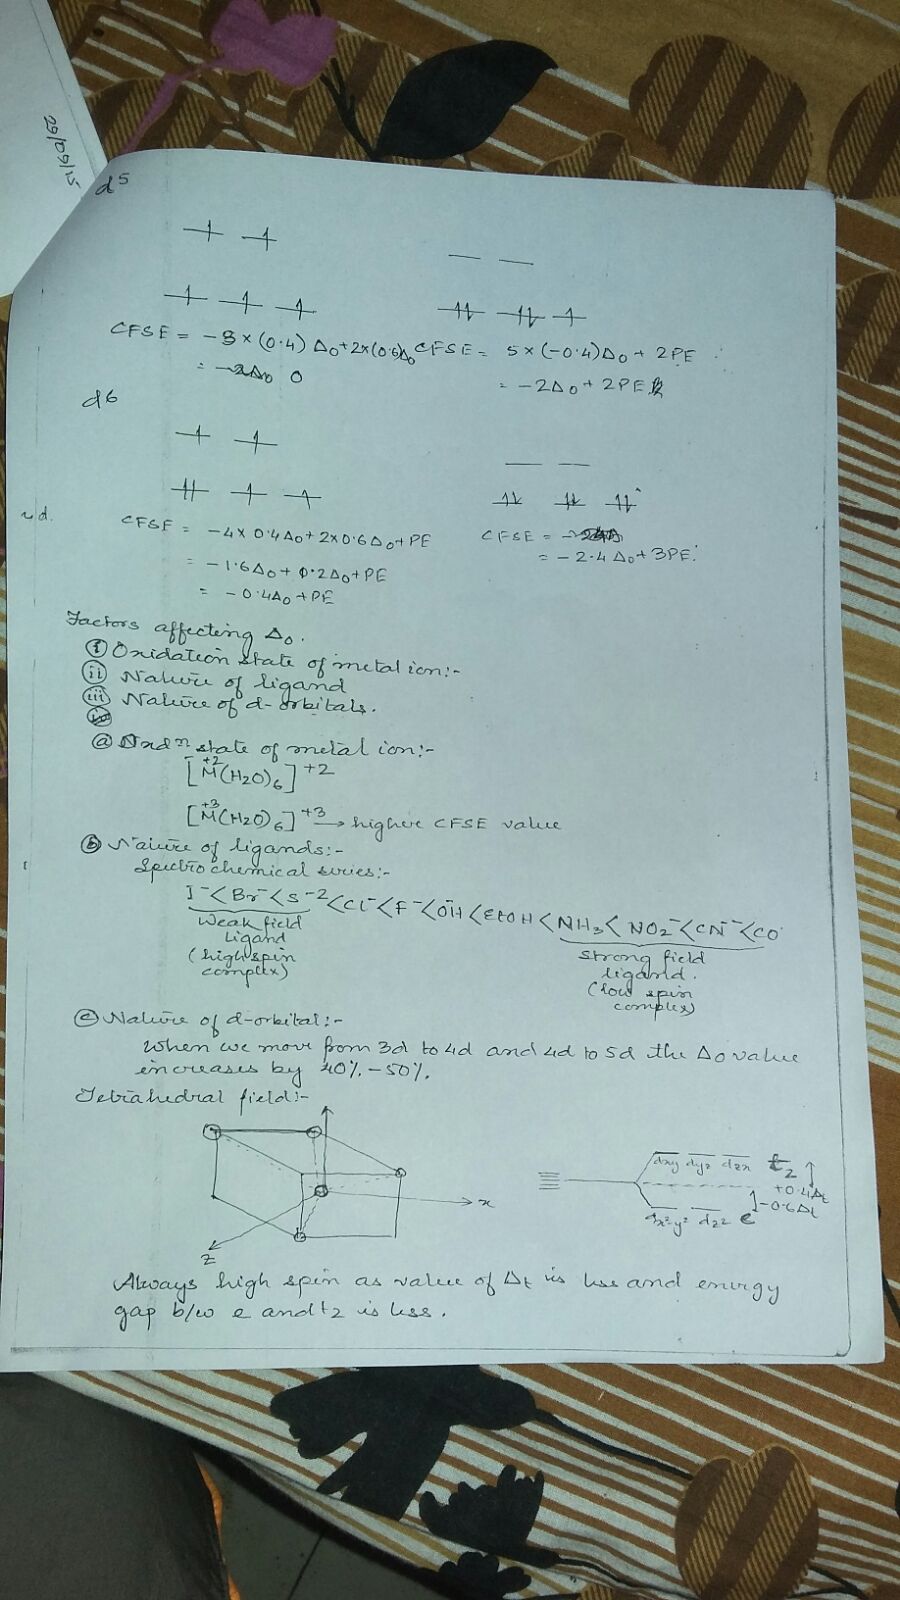 29/09/15
d5
CFSE = -3×(0.4) Δo+2×(0.6)Δo
= 0
CFSE = 5×(-0.4)Δo + 2PE
= -2Δo + 2PE
d6
CFSE = -4×0.4Δo+2×0.6Δo+PE
= -1.6Δo+0.2Δo+PE
= -0.4Δo+PE
CFSE =
= -2.4Δo+3PE
Factors affecting Δo.
(i) Oxidation state of metal ion:-
(ii) Nature of ligand
(iii) Nature of d-orbitals.
(a) Oxdn state of metal ion:-
[M+2(H2O)6]+2
[M+3(H2O)6]+3 → higher CFSE value
(b) Nature of ligands:-
Spectrochemical series:-
I-<Br-<S-2<Cl-<F-<OH-<EtOH<NH3<NO2-<CN-<CO
Weak field
ligand
(high spin
complex)
strong field
ligand.
(low spin
complex)
(c) Nature of d-orbital:-
When we move from 3d to 4d and 4d to 5d the Δo value
increases by 40%-50%.
Tetrahedral field:-
x
z
dxy dyz dzx t2
+0.4Δt
-0.6Δt
dx2y2 dz2 e
Always high spin as value of Δt is less and energy
gap b/w e and t2 is less.